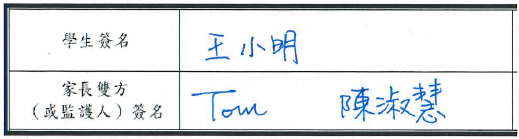 學生簽名 王小明
家長雙方
（或監護人）簽名 Tom 陳淑慧